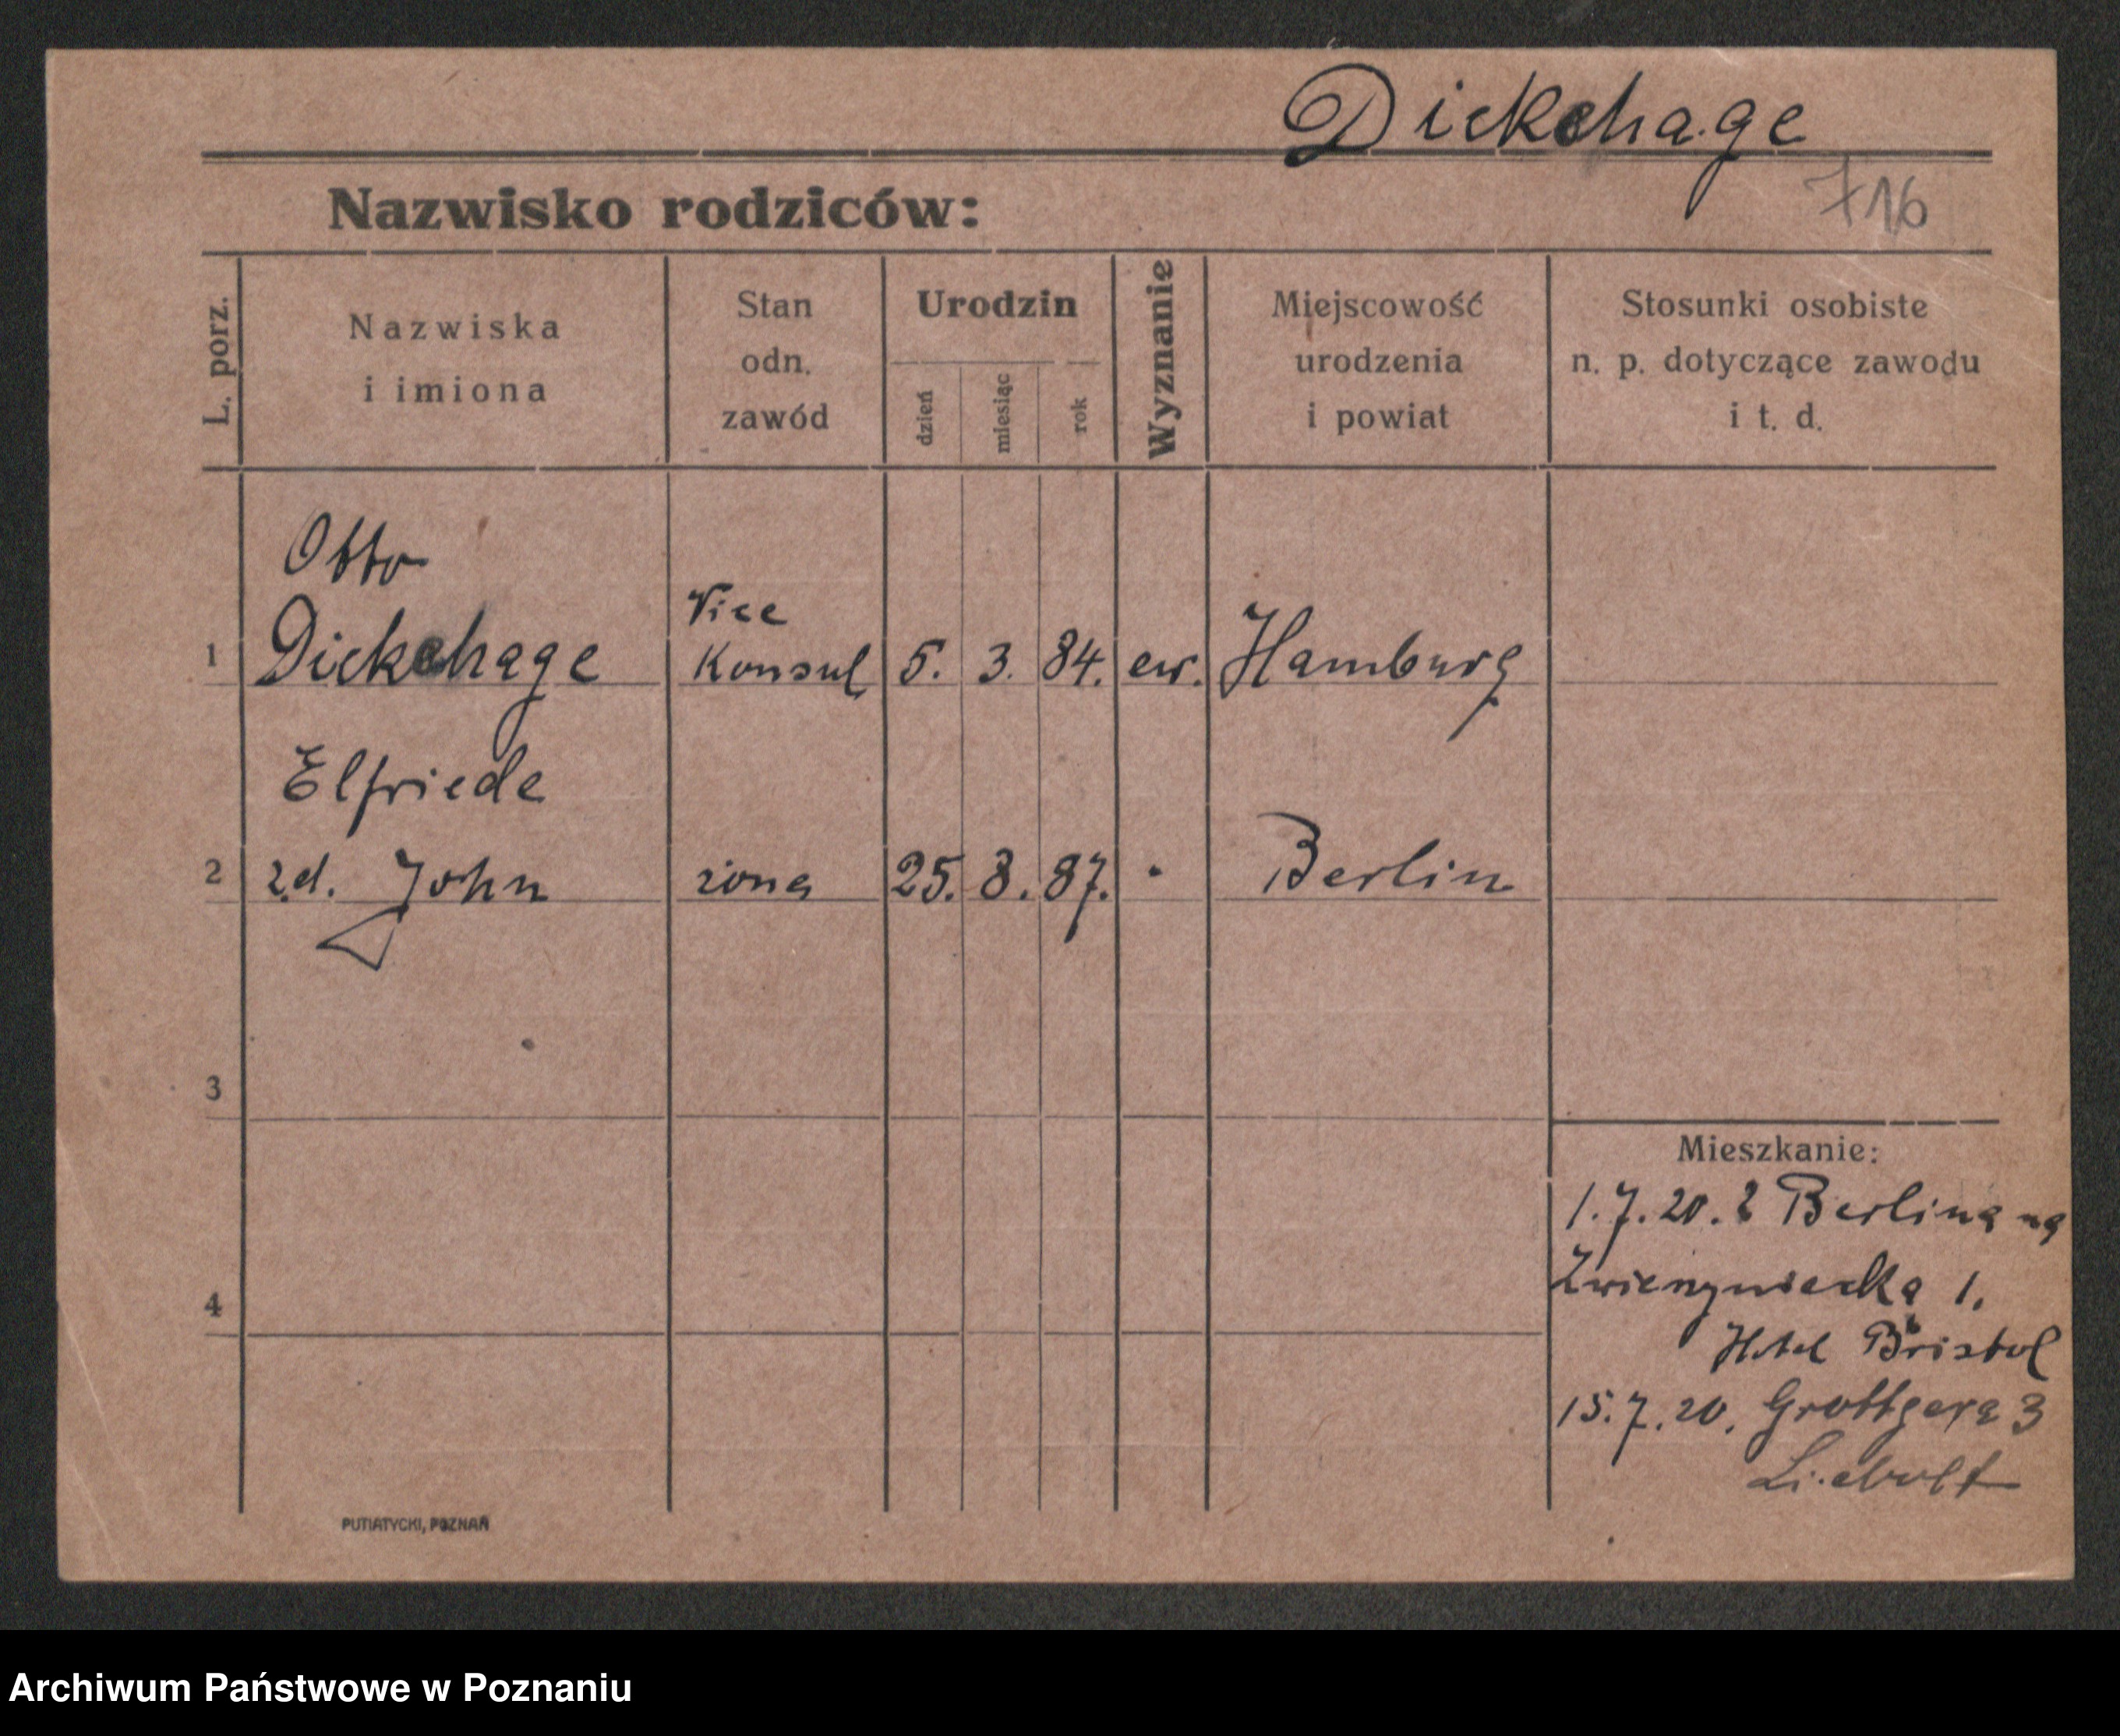 Dickehage
716
Nazwisko rodziców:
L. porz.
Nazwiska
i imiona
Stan
odn.
zawód
Urodzin
dzień
miesiąc
rok
Wyznanie
Miejscowość
urodzenia
i powiat
Stosunki osobiste
n. p. dotyczące zawodu
i t. d.
Otto
Vice
1 Dickehage Konsul 5. 3. 84. ew. Hamburg
Elfriede
2 z.d. John żona 25. 8. 87. " Berlin
3
Mieszkanie:
1.7.20. z Berlina na
Zwierzyniecka 1.
4
Hotel Bristol
15.7.20. Grottgera 3
PUTIATYCKI, POZNAŃ
Archiwum Państwowe w Poznaniu